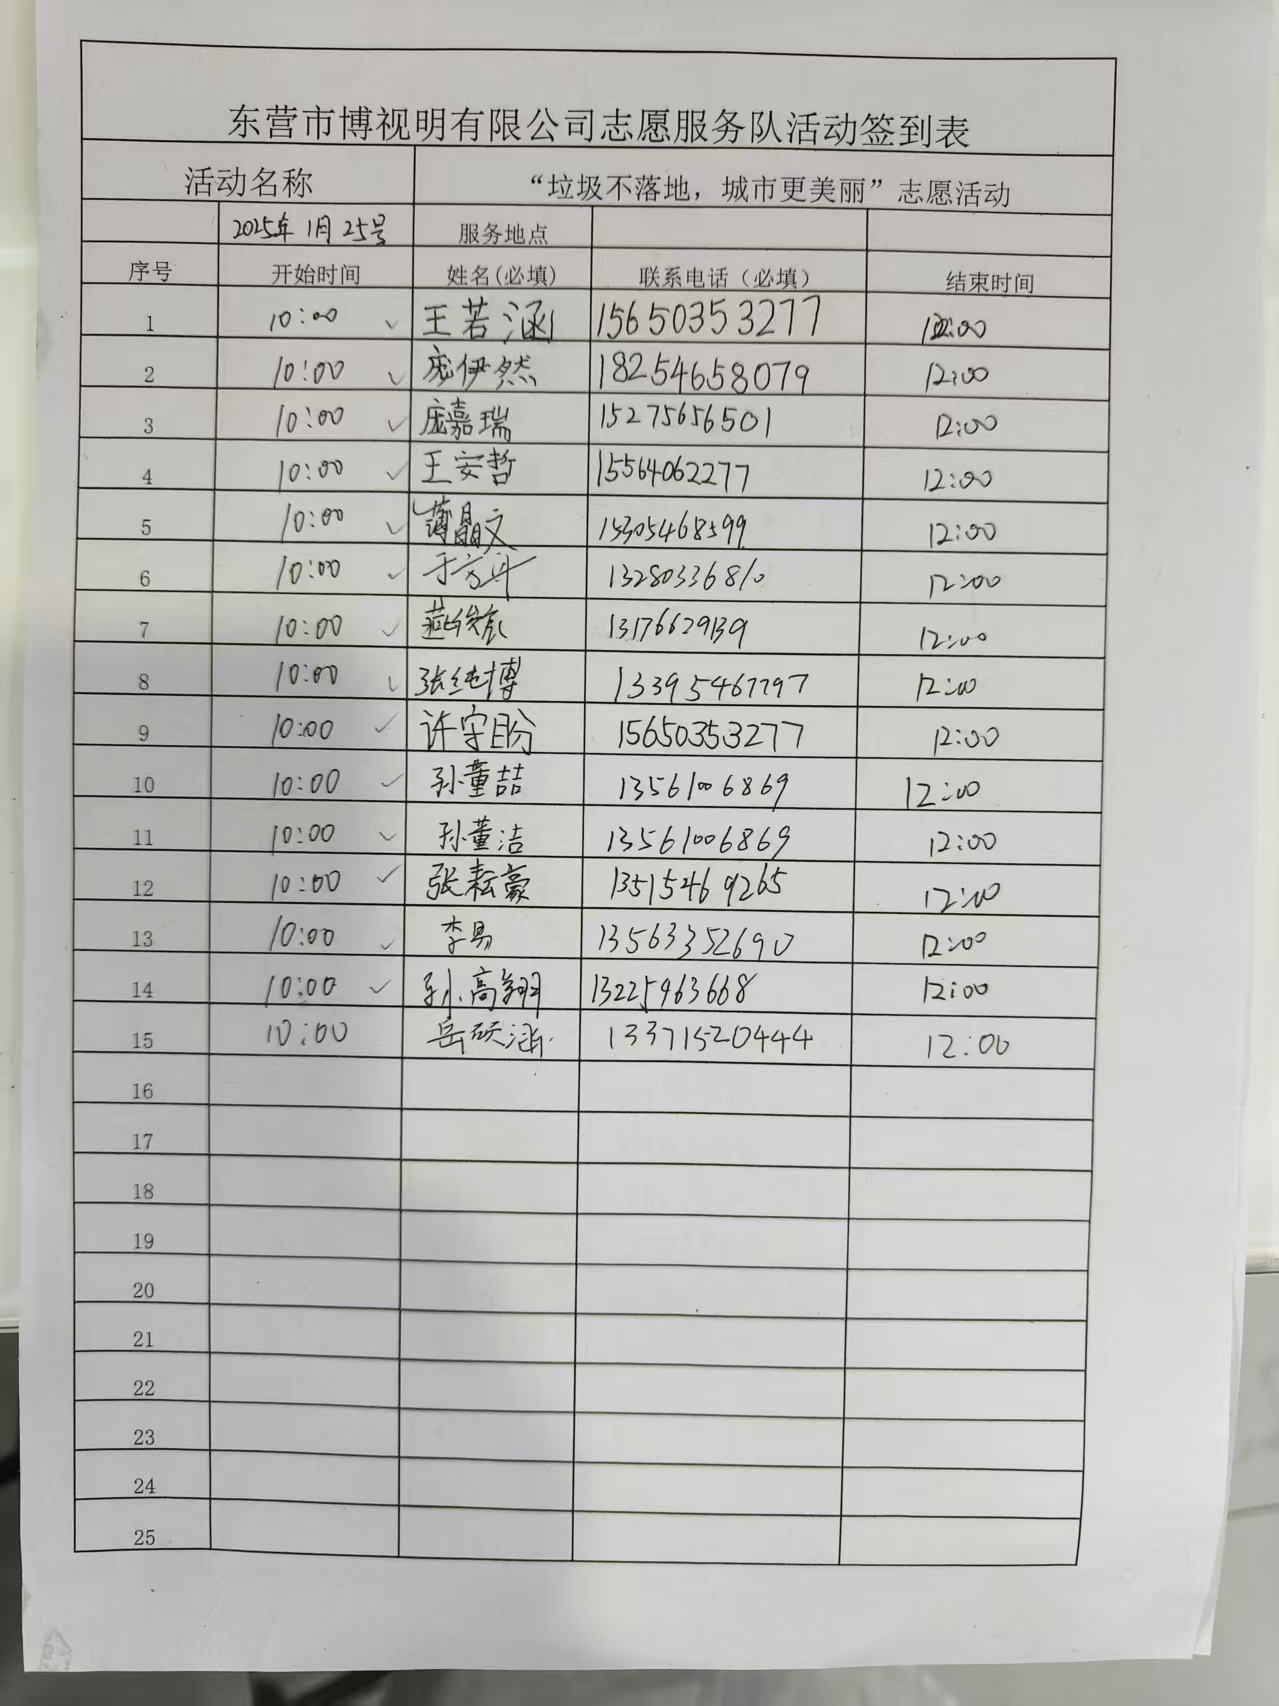 东营市博视明有限公司志愿服务队活动签到表
活动名称 “垃圾不落地，城市更美丽”志愿活动
2025年1月25号 服务地点
序号 开始时间 姓名(必填) 联系电话（必填） 结束时间
1 10:00 ✓ 王若涵 15650353277 12:00
2 10:00 ✓ 庞伊然 18254658079 12:00
3 10:00 ✓ 庞嘉瑞 15275656501 12:00
4 10:00 ✓ 王安哲 15564062277 12:00
5 10:00 ✓ 薄晶文 15305468599 12:00
6 10:00 ✓ 13280336810 12:00
7 10:00 ✓ 13176629139 12:00
8 10:00 ✓ 张纯博 13395467797 12:00
9 10:00 ✓ 许守盼 15650353277 12:00
10 10:00 ✓ 孙董喆 13561006869 12:00
11 10:00 ✓ 孙董洁 13561006869 12:00
12 10:00 ✓ 张耘豪 13515469265 12:00
13 10:00 ✓ 李易 13563352690 12:00
14 10:00 ✓ 孙高翔 13225463668 12:00
15 10:00 13371520444 12:00
16
17
18
19
20
21
22
23
24
25